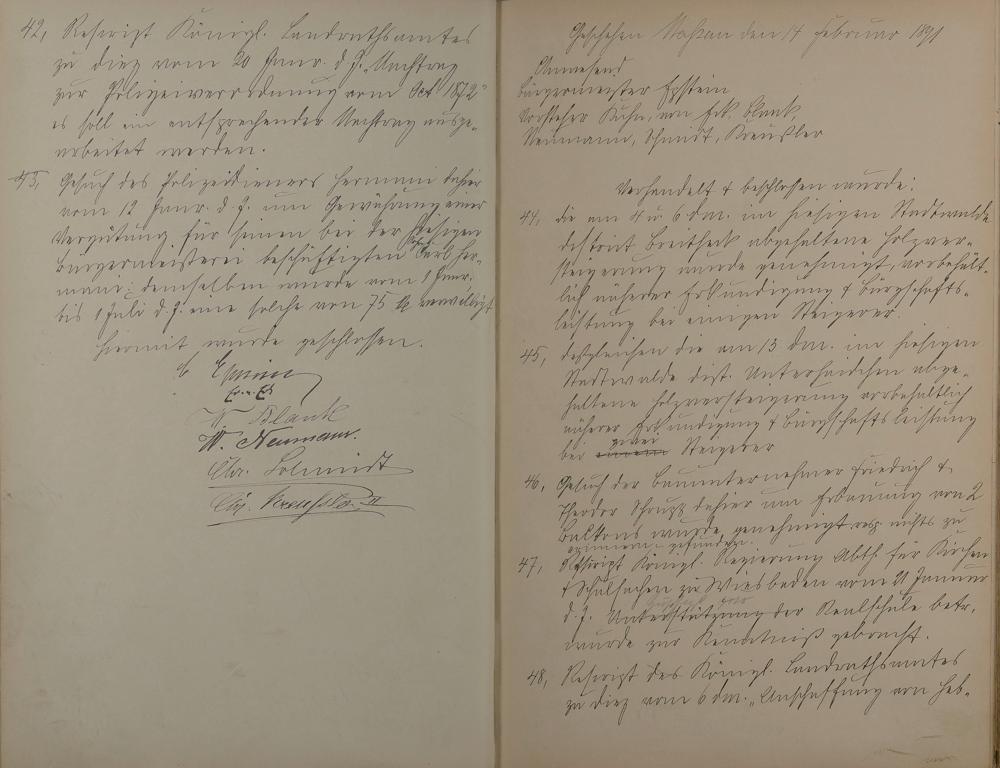 42, Rescript Königl. Landrathsamtes
zu Diez vom 20 Janr. d. J. „Nachtrag
zur Polizeiverordnung vom Oct 1872"
es soll ein entsprechender Nachtrag ausge-
arbeitet werden.
43, Gesuch des Polizeidieners Hermann dahier
vom 12 Janr. d. J. um Gewährung einer
Vergütung für seinen bei der hiesigen
Bürgermeisterei beschäftigten Carl Her-
mann: demselben wurde vom 1 Janr.
bis 1 Juli d. J. eine solche von 75 M verwilligt
Hiermit wurde geschlossen.
W. Blank
W. Neumann.
Chr. Schmidt
Chr. Kreußler II
Geschehen Nassau den 14 Februar 1891
Anwesend
Bürgermeister Epstein
Vorsteher Kuhn, von Eck, Blank,
Neumann, Schmidt, Kreußler
Verhandelt & beschlossen wurde:
44, die am 4 u 6 dm. im hiesigen Stadtwalde
District Breitheck abgehaltene Holzver-
steigerung wurde genehmigt, vorbehält-
lich näherer Erkundigung & Bürgschafts-
leistung bei einigen Steigerer.
45, desgleichen die am 13 dm. im hiesigen
Stadtwalde Dist. Unterhaidchen abge-
haltene Holzversteigerung vorbehaltlich
näherer Erkundigung & Bürgschaftsleistung
bei einem zwei Steigerer
46, Gesuch der Bauunternehmer Friedrich &
Theodor dahier um Erbauung von 2
Balkons wurde genehmigt resp. nichts zu
erinnern gefunden.
47, Rescript Königl. Regierung Abth. für Kirchen
& Schulsachen zu Wiesbaden vom 21 Januar
d. J. Unterstützung der Realschule betr.
wurde zur Kenntniß gebracht.
48, Rescript des Königl. Landrathsamtes
zu Diez vom 6 dm. „Anschaffung von Heb-